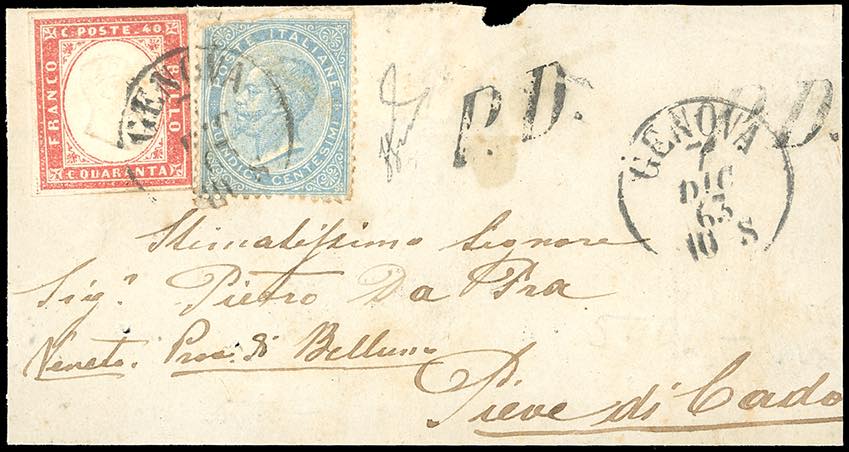 C. POSTE. 40.
FRANCO
BOLLO
C. QUARANTA
POSTE ITALIANE
QUINDICI CENTESIMI
GENOVA
P. D.
P. D.
GENOVA
7
DIC
63
10 S
Stimatissimo Signore
Sig.r Pietro Da Pra
Veneto. Prov. di Belluno
Pieve di Cado